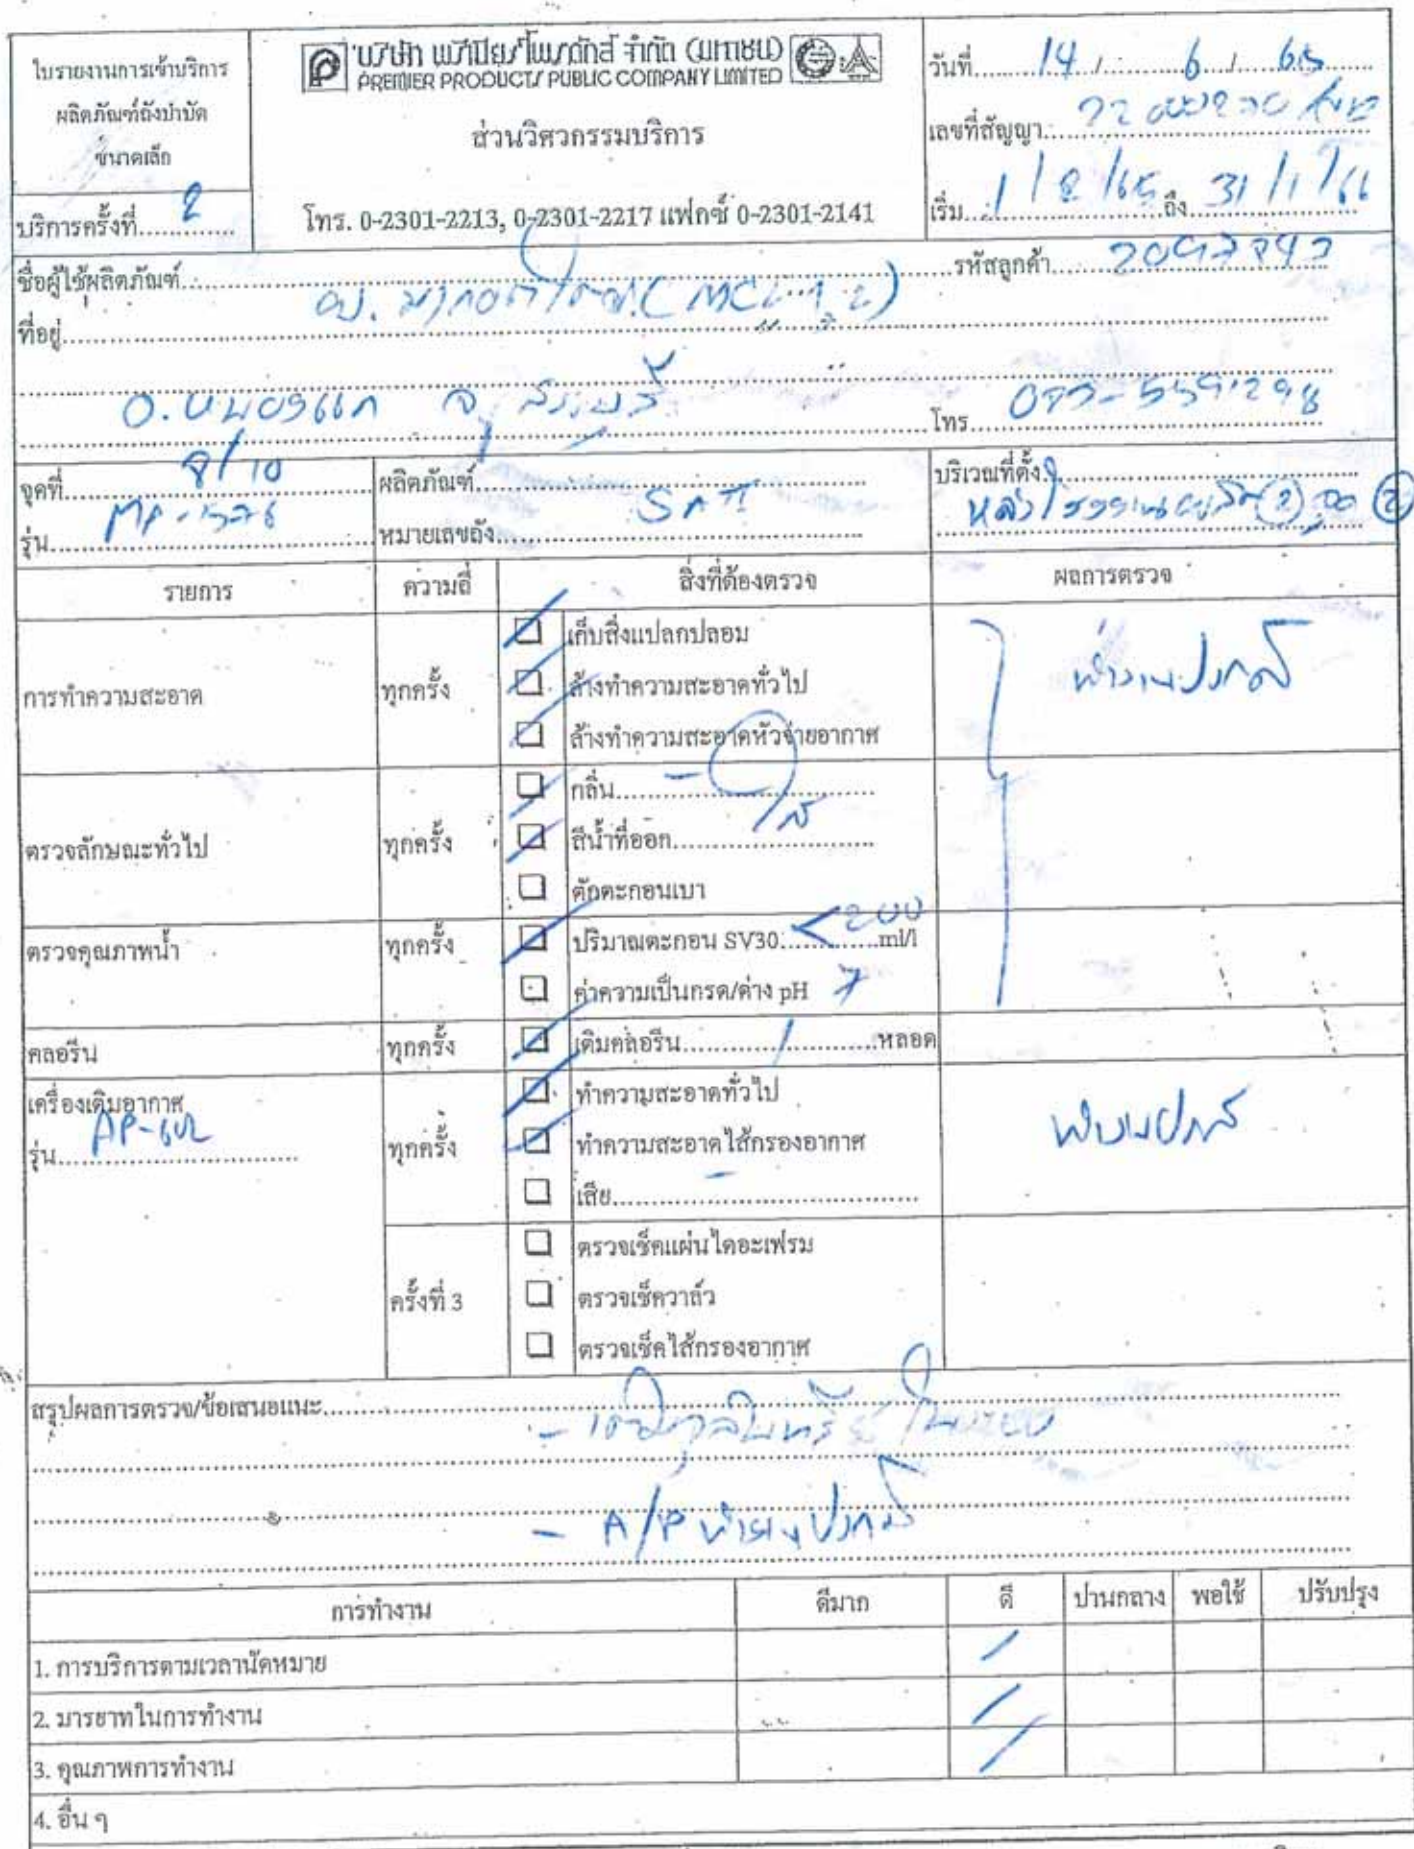 ใบรายงานการเข้าบริการ
ผลิตภัณฑ์ถังบำบัด
ขนาดเล็ก
บริการครั้งที่ 2
บริษัท พรีเมียร์ โพรดักส์ จำกัด (มหาชน)
PREMIER PRODUCTS PUBLIC COMPANY LIMITED
ส่วนวิศวกรรมบริการ
โทร. 0-2301-2213, 0-2301-2217 แฟกซ์ 0-2301-2141
วันที่ 14 / 6 / 65
เลขที่สัญญา
เริ่ม 1/2/65 ถึง 31/1/66
ชื่อผู้ใช้ผลิตภัณฑ์
รหัสลูกค้า
ที่อยู่
อ.หนองแค จ.สระบุรี
โทร
จุดที่ 8/10
ผลิตภัณฑ์
บริเวณที่ตั้ง
รุ่น
หมายเลขถัง
รายการ ความถี่ สิ่งที่ต้องตรวจ ผลการตรวจ
การทำความสะอาด ทุกครั้ง
เก็บสิ่งแปลกปลอม
ล้างทำความสะอาดทั่วไป
ล้างทำความสะอาดหัวจ่ายอากาศ
ทำงานปกติ
ตรวจลักษณะทั่วไป ทุกครั้ง
กลิ่น -
สีน้ำที่ออก ใส
ตักตะกอนเบา
ตรวจคุณภาพน้ำ ทุกครั้ง
ปริมาณตะกอน SV30 <200 ml/l
ค่าความเป็นกรด/ด่าง pH 7
คลอรีน ทุกครั้ง เติมคลอรีน / หลอด
เครื่องเติมอากาศ
รุ่น
ทุกครั้ง
ทำความสะอาดทั่วไป
ทำความสะอาดไส้กรองอากาศ
เสีย -
ทำงานปกติ
ครั้งที่ 3
ตรวจเช็คแผ่นไดอะเฟรม
ตรวจเช็ควาล์ว
ตรวจเช็คไส้กรองอากาศ
สรุปผลการตรวจ/ข้อเสนอแนะ
- เติมจุลินทรีย์ในระบบ
- A/P ทำงานปกติ
การทำงาน ดีมาก ดี ปานกลาง พอใช้ ปรับปรุง
1. การบริการตามเวลานัดหมาย /
2. มารยาทในการทำงาน /
3. คุณภาพการทำงาน /
4. อื่น ๆ